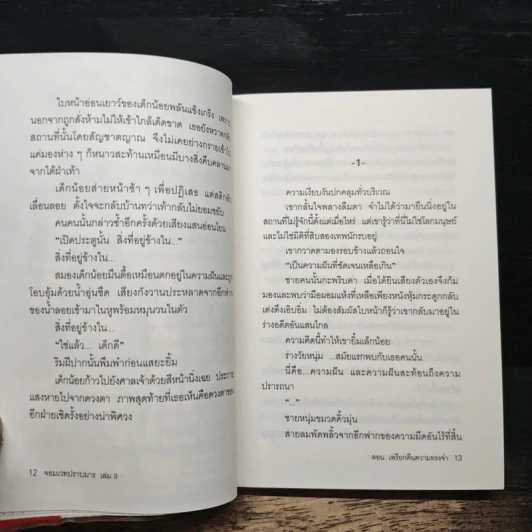 ใบหน้าอ่อนเยาว์ของเด็กน้อยพลันแข็งเกร็ง เพราะ
นอกจากถูกสั่งห้ามไม่ให้เข้าใกล้เด็ดขาด เธอยังหวาดกลัว
สถานที่นั้นโดยสัญชาตญาณ จึงไม่เคยย่างกรายเข้าไป
แค่มองห่าง ๆ ก็หนาวสะท้านเหมือนมีบางสิ่งคืบคลาน
จากใต้ฝ่าเท้า
เด็กน้อยส่ายหน้าช้า ๆ เพื่อปฏิเสธ แต่สติกลับ
เลื่อนลอย ตั้งใจจะกลับบ้านทว่าเท้ากลับไม่ยอมขยับ
คนคนนั้นกล่าวซ้ำอีกครั้งด้วยเสียงแสนอ่อนโยน
“เปิดประตูนั้น สิ่งที่อยู่ข้างใน...”
สิ่งที่อยู่ข้างใน...
สมองเด็กน้อยมึนตื้อเหมือนตกอยู่ในความฝันและถูก
โอบอุ้มด้วยน้ำอุ่นซีด เสียงกังวานประหลาดจากอีกฟาก
ของน้ำลอยเข้ามาในหูพร้อมหมุนวนในตัว
สิ่งที่อยู่ข้างใน...
“ใช่แล้ว... เด็กดี”
ริมฝีปากนั้นพึมพำก่อนแสยะยิ้ม
เด็กน้อยก้าวไปยังศาลเจ้าด้วยสีหน้านิ่งเฉย ประกาย
แสงหายไปจากดวงตา ภาพสุดท้ายที่เธอเห็นคือดวงตาของ
อีกฝ่ายเชิดรั้งอย่างน่าพิศวง
12 จอมเวทปราบมาร เล่ม 9
-1-
ความเงียบงันปกคลุมทั่วบริเวณ
เขากลั้นใจพลางลืมตา จำไม่ได้ว่ามายืนนิ่งอยู่ใน
สถานที่ไม่รู้จักนี้ตั้งแต่เมื่อไหร่ แต่เขารู้ว่าที่นี่ไม่ใช่โลกมนุษย์
และไม่ใช่มิติที่สิบสองเทพนักรบอยู่
เขากวาดตามองรอบข้างแล้วถอนใจ
“เป็นความฝันที่ชัดเจนเหลือเกิน”
ชายคนนั้นกะพริบตา เมื่อได้ยินเสียงตัวเองจึงก้ม
มองและพบว่ามือผอมแห้งที่เหลือเพียงหนังหุ้มกระดูกกลับ
เต่งตึงเอิบอิ่ม ไม่ต้องสัมผัสใบหน้าก็รู้ว่าเขากลับมาอยู่ใน
ร่างอดีตอันแสนไกล
ความคิดนี้ทำให้เขายิ้มเล็กน้อย
ร่างวัยหนุ่ม ...สมัยแรกพบกับเธอคนนั้น
นี่คือ...ความฝัน และความฝันสะท้อนถึงความ
ปรารถนา
“...”
ชายหนุ่มขมวดคิ้วมุ่น
สายลมพัดพลิ้วจากอีกฟากของความมืดอันไร้ที่สิ้น
ตอน เพรียกคืนความทรงจำ 13